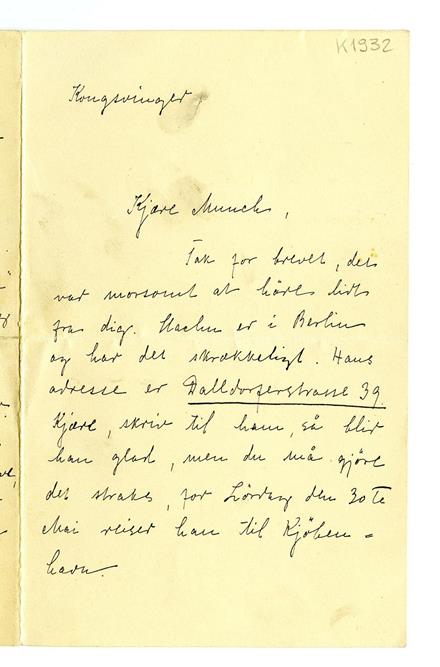 K1932
Kongsvinger
Kjære Munch,
Tak for brevet, det
var morsomt at høre lidt
fra dig. er i Berlin
og har det skrækkeligt. Hans
adresse er Dalldorferstrasse 39.
Kjære, skriv til ham, så blir
han glad, men du må gjöre
det straks, for Lördag den 30te
Mai reiser han til Kjöben=
havn.